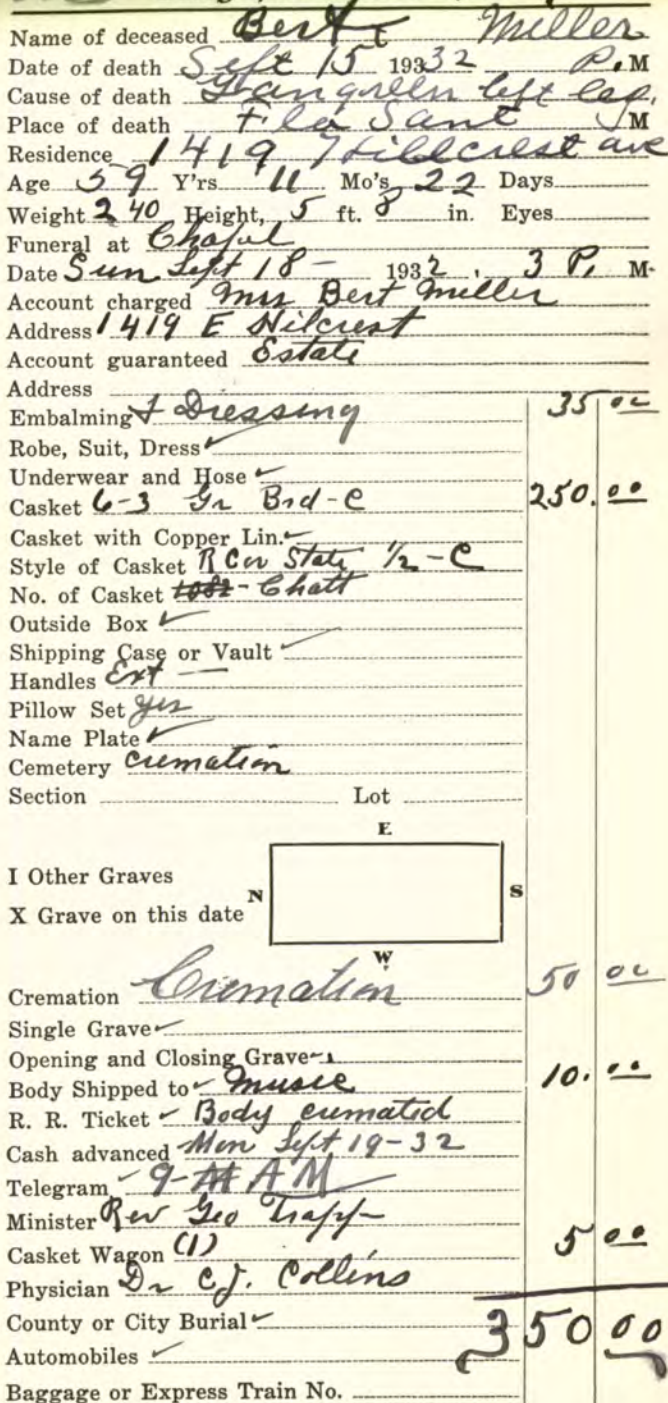 Name of deceased Bert Miller
Date of death Sept 15 1932 P.M
Cause of death Gangreen left leg.
Place of death Fla Sant M
Residence 1419 Hillcrest ave
Age 59 Y'rs 11 Mo's 22 Days
Weight 240 Height, 5 ft. 8 in. Eyes
Funeral at Chapel
Date Sun Sept 18 - 1932. 3 P. M.
Account charged Mrs Bert Miller
Address 1419 E Hilcrest
Account guaranteed Estate
Address
Embalming & Dressing 35 00
Robe, Suit, Dress
Underwear and Hose
Casket 6-3 Gr Brd-C 250.00
Casket with Copper Lin.
Style of Casket R Cor State 1/2 - C
No. of Casket 1082 - Chatt
Outside Box
Shipping Case or Vault
Handles Ext —
Pillow Set yes
Name Plate
Cemetery cremation
Section Lot
E
I Other Graves
N S
X Grave on this date
W
Cremation Cremation 50 00
Single Grave
Opening and Closing Grave
Body Shipped to music 10.00
R. R. Ticket Body cremated
Cash advanced Mon Sept 19-32
Telegram 9 - AM
Minister Rev Geo Trapp
Casket Wagon (1) 5 00
Physician Dr C.J. Collins
County or City Burial 350 00
Automobiles
Baggage or Express Train No.